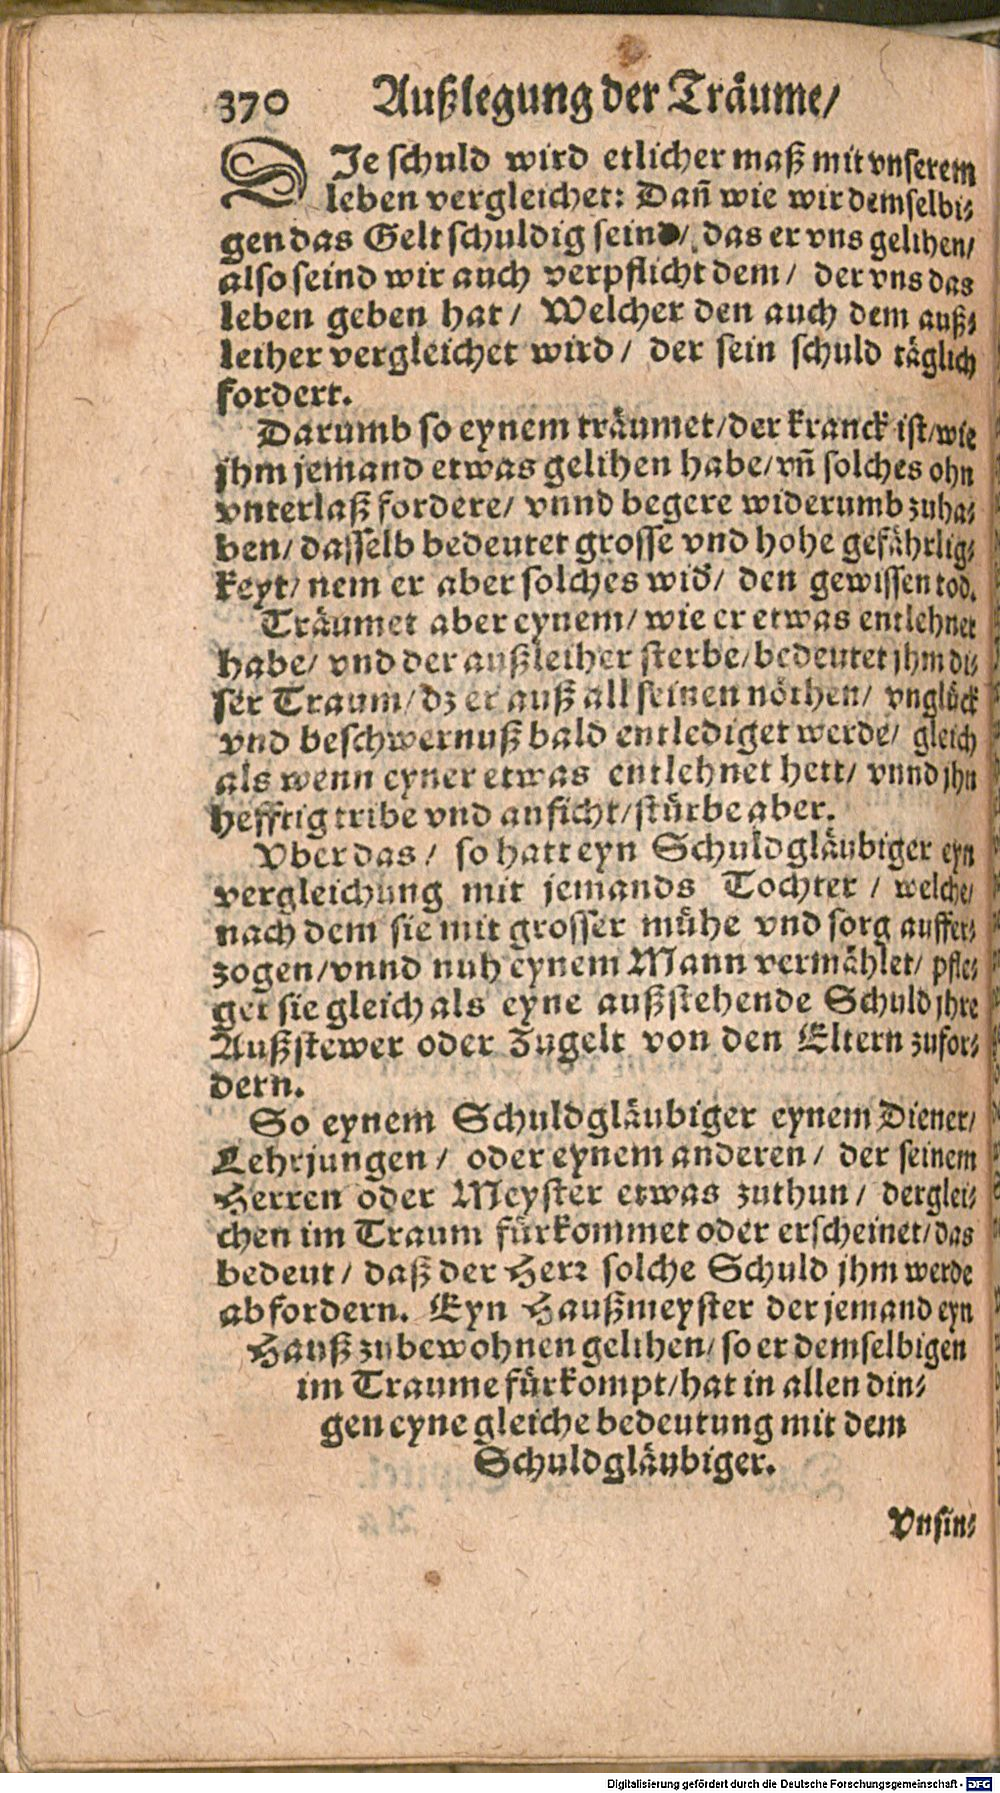 370 Außlegung der Träume/
DIe schuld wird etlicher maß mit vnserem
leben vergleichet: Dañ wie wir demselbi⸗
gen das Gelt schuldig seind/ das er vns gelihen/
also seind wir auch verpflicht dem/ der vns das
leben geben hat/ Welcher den auch dem auß⸗
leiher vergleichet wird/ der sein schuld täglich
fordert.
Darumb so eynem träumet/der kranck ist/wie
jhm jemand etwas gelihen habe/vñ solches ohn
vnterlaß fordere/ vnnd begere widerumb zuha⸗
ben/ dasselb bedeutet grosse vnd hohe gefährlig⸗
keyt/ nem er aber solches wid'/ den gewissen tod.
Träumet aber eynem/ wie er etwas entlehnet
habe/ vnd der außleiher sterbe/bedeutet jhm di⸗
ser Traum/dz er auß all seinen nöthen/ vnglück
vnd beschwernuß bald entlediget werde/ gleich
als wenn eyner etwas entlehnet hett/ vnnd jhn
hefftig tribe vnd anficht/stürbe aber.
Vber das/ so hatt eyn Schuldgläubiger eyn
vergleichung mit jemands Tochter/ welche/
nach dem sie mit grosser mühe vnd sorg auffer⸗
zogen/vnnd nuh eynem Mann vermählet/ pfle⸗
get sie gleich als eyne außstehende Schuld jhre
Außstewer oder Zugelt von den Eltern zufor⸗
dern.
So eynem Schuldgläubiger eynem Diener/
Lehrjungen/ oder eynem anderen/ der seinem
Herren oder Meyster etwas zuthun/ derglei⸗
chen im Traum fürkommet oder erscheinet/das
bedeut/ daß der Herꝛ solche Schuld jhm werde
abfordern. Eyn Haußmeyster der jemand eyn
Hauß zubewohnen gelihen/ so er demselbigen
im Traume fürkompt/hat in allen din⸗
gen eyne gleiche bedeutung mit dem
Schuldgläubiger.
Vnsin⸗
Digitalisierung gefördert durch die Deutsche Forschungsgemeinschaft - DFG